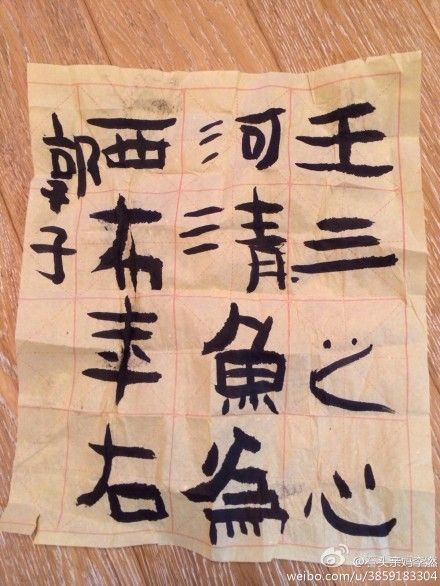 壬三之心
河清魚為
西布右
子
weibo.com/u/3859183304